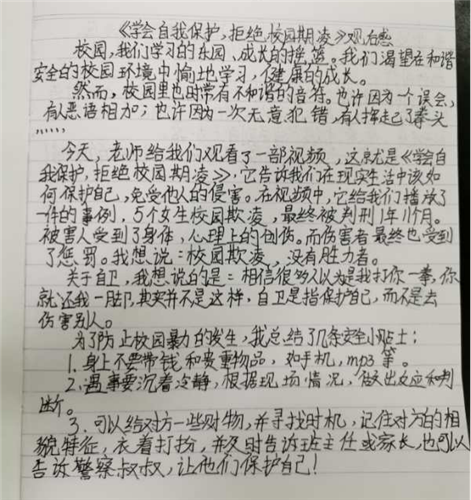 《学会自我保护，拒绝校园期凌》观后感
校园，我们学习的乐园、成长的摇篮。我们渴望在和谐
安全的校园环境中愉地学习，健康的成长。
然而，校园里也时常有不和谐的音符。也许因为一个误会，
有人恶语相加；也许因为一次无意犯错，有人挥起了拳头
……
今天，老师给我们观看了一部视频，这就是《学会自
我保护，拒绝校园期凌》，它告诉我们在现实生活中该如
何保护自己，免受他人的侵害。在视频中，它给我们播放了
一件的事例，5个女生校园欺凌，最终被判刑1年11个月。
被害人受到了身体，心理上的创伤。而伤害者最终也受到
了惩罚。我想说：校园欺凌，没有胜力者。
关于自卫，我想说的是：相信很多人以为是我打你一拳，你
就还我一脚，其实并不是这样，自卫是指保护自己，而不是去
伤害别人。
为了防止校园暴力的发生，我总结了几条安全小贴士：
1.身上不要带钱和贵重物品，如手机，mp3等。
2.遇事要沉着冷静，根据现场情况，做出反应和判
断。
3.可以给对方一些财物，并寻找时机，记住对方的相
貌特征，衣着打扮，并及时告诉班主任或家长，也可以
告诉警察叔叔，让他们保护自己！